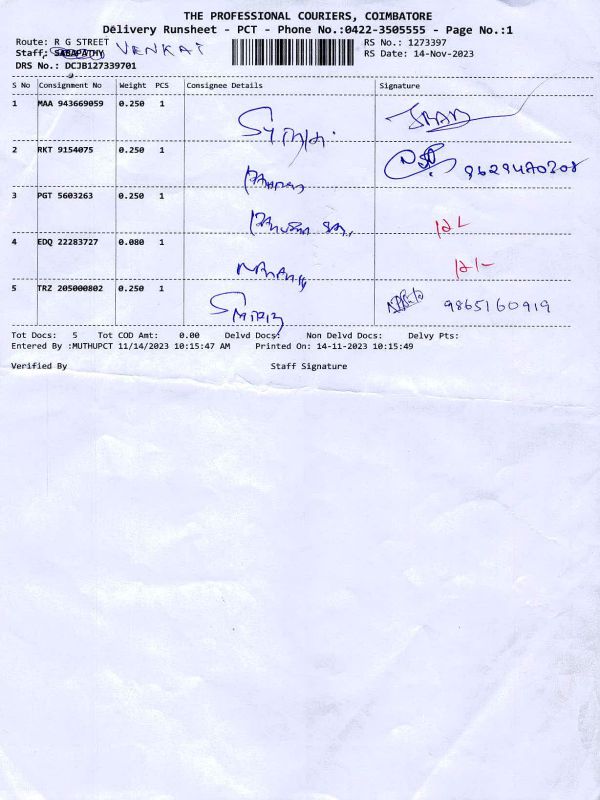 THE PROFESSIONAL COURIERS, COIMBATORE
Delivery Runsheet - PCT - Phone No.:0422-3505555 - Page No.:1
Route: R G STREET
RS No.: 1273397
Staff: SABAPATHY VENKAT
RS Date: 14-Nov-2023
DRS No.: DCJB127339701
S No Consignment No Weight PCS Consignee Details Signature
1 MAA 943669059 0.250 1
2 RKT 9154075 0.250 1 9629470308
3 PGT 5603263 0.250 1
4 EDQ 22283727 0.080 1
5 TRZ 205000802 0.250 1 9865160919
Tot Docs: 5 Tot COD Amt: 0.00 Delvd Docs: Non Delvd Docs: Delvy Pts:
Entered By :MUTHUPCT 11/14/2023 10:15:47 AM Printed On: 14-11-2023 10:15:49
Verified By Staff Signature